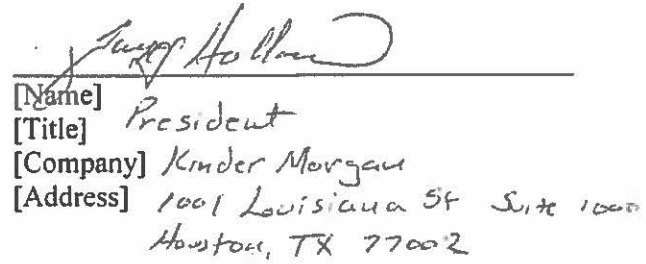 [Name]
[Title] President
[Company] Kinder Morgan
[Address] 1001 Louisiana St Suite 1000
Houston, TX 77002